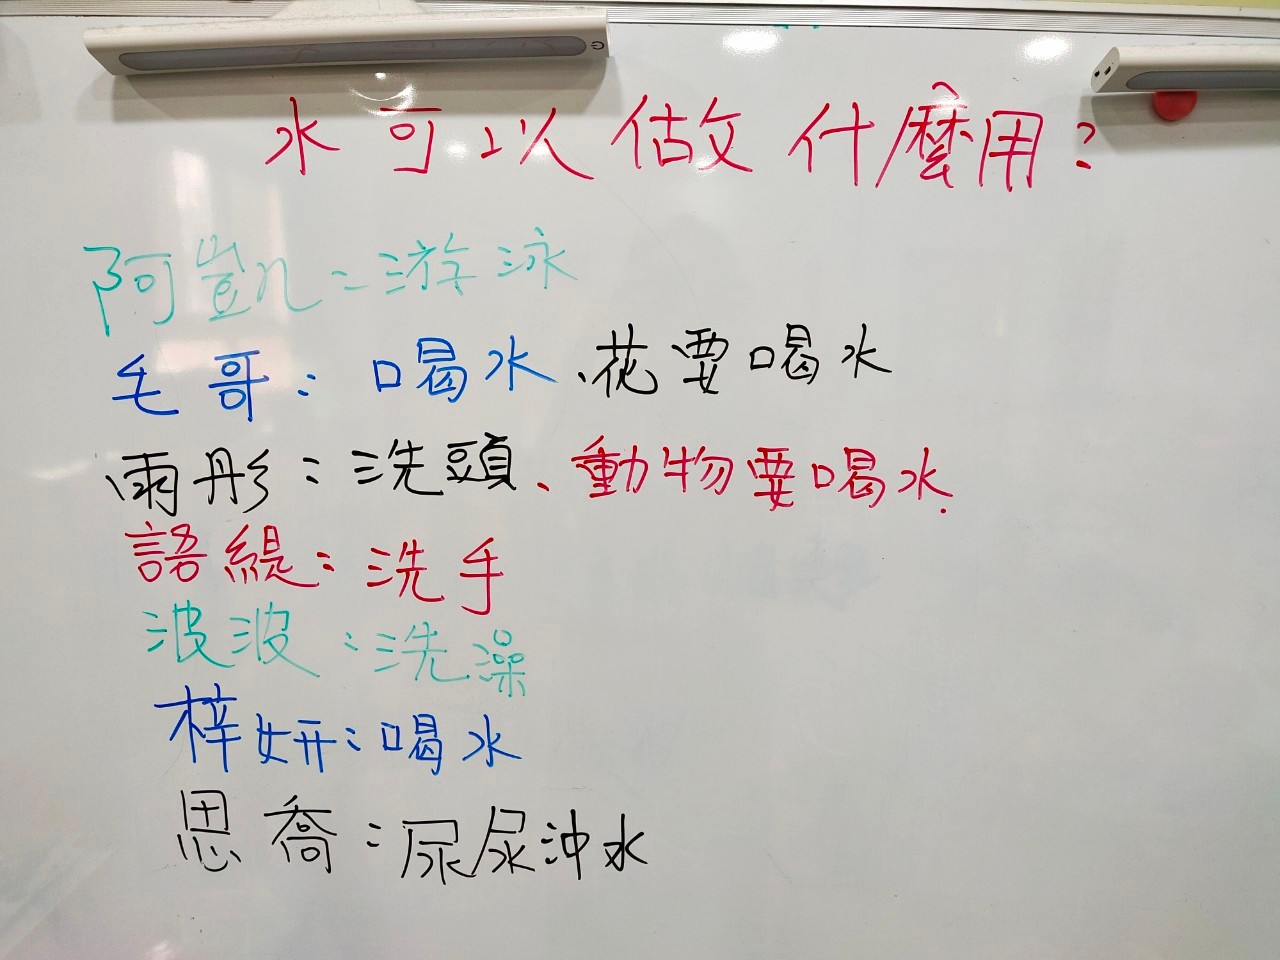 水可以做什麼用?
阿凱:游泳
毛哥:喝水、花要喝水
雨彤:洗頭、動物要喝水.
語緹:洗手
波波:洗澡
梓妍:喝水
思喬:尿尿沖水